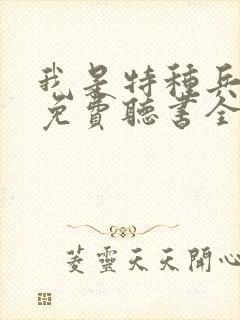 我是特種兵
免費聽書全
菱靈天天開心